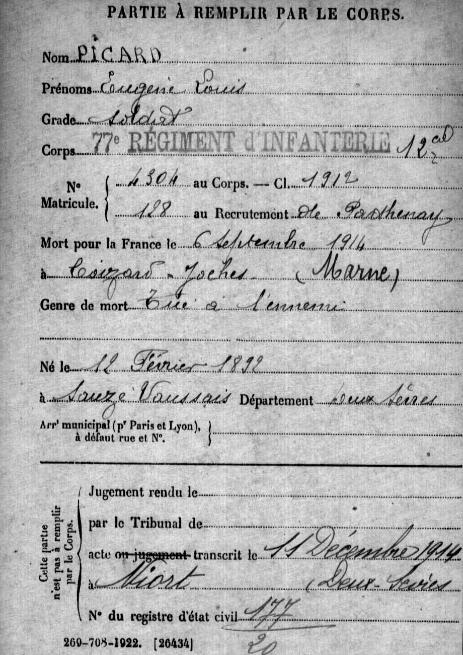 PARTIE À REMPLIR PAR LE CORPS.
Nom PICARD
Prénoms Eugène Louis
Grade soldat
Corps 77e RÉGIMENT d'INFANTERIE 12
N° Matricule. { 4304 au Corps. — Cl. 1912
128 au Recrutement de Parthenay
Mort pour la France le 6 Septembre 1914
à Coizard-Joches (Marne)
Genre de mort Tué à l'ennemi
Né le 12 Février 1892
à Sauzé Vaussais Département Deux Sèvres
Arrt municipal (pr Paris et Lyon),
à défaut rue et N°.
Cette partie n'est pas à remplir par le Corps.
Jugement rendu le
par le Tribunal de
acte ou jugement transcrit le 11 Décembre 1914
à Niort (Deux-Sèvres
N° du registre d'état civil 177
20
269-708-1922. [26434]